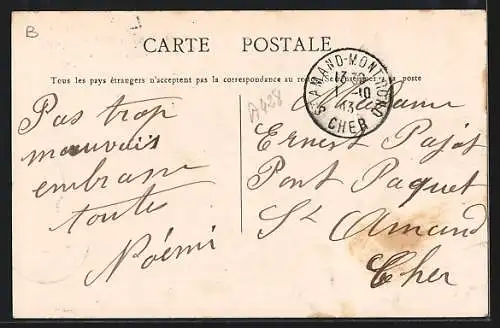 B
CARTE POSTALE
Tous les pays étrangers n'acceptent pas la correspondance au
poste
Pas trop
mauvais
embrasse
toute
Noémi
A428
ST AMAND-MONTROND
13
1 -10
13
CHER
Madame
Ernest Pajot
Pont Paquet
St Amand
Cher